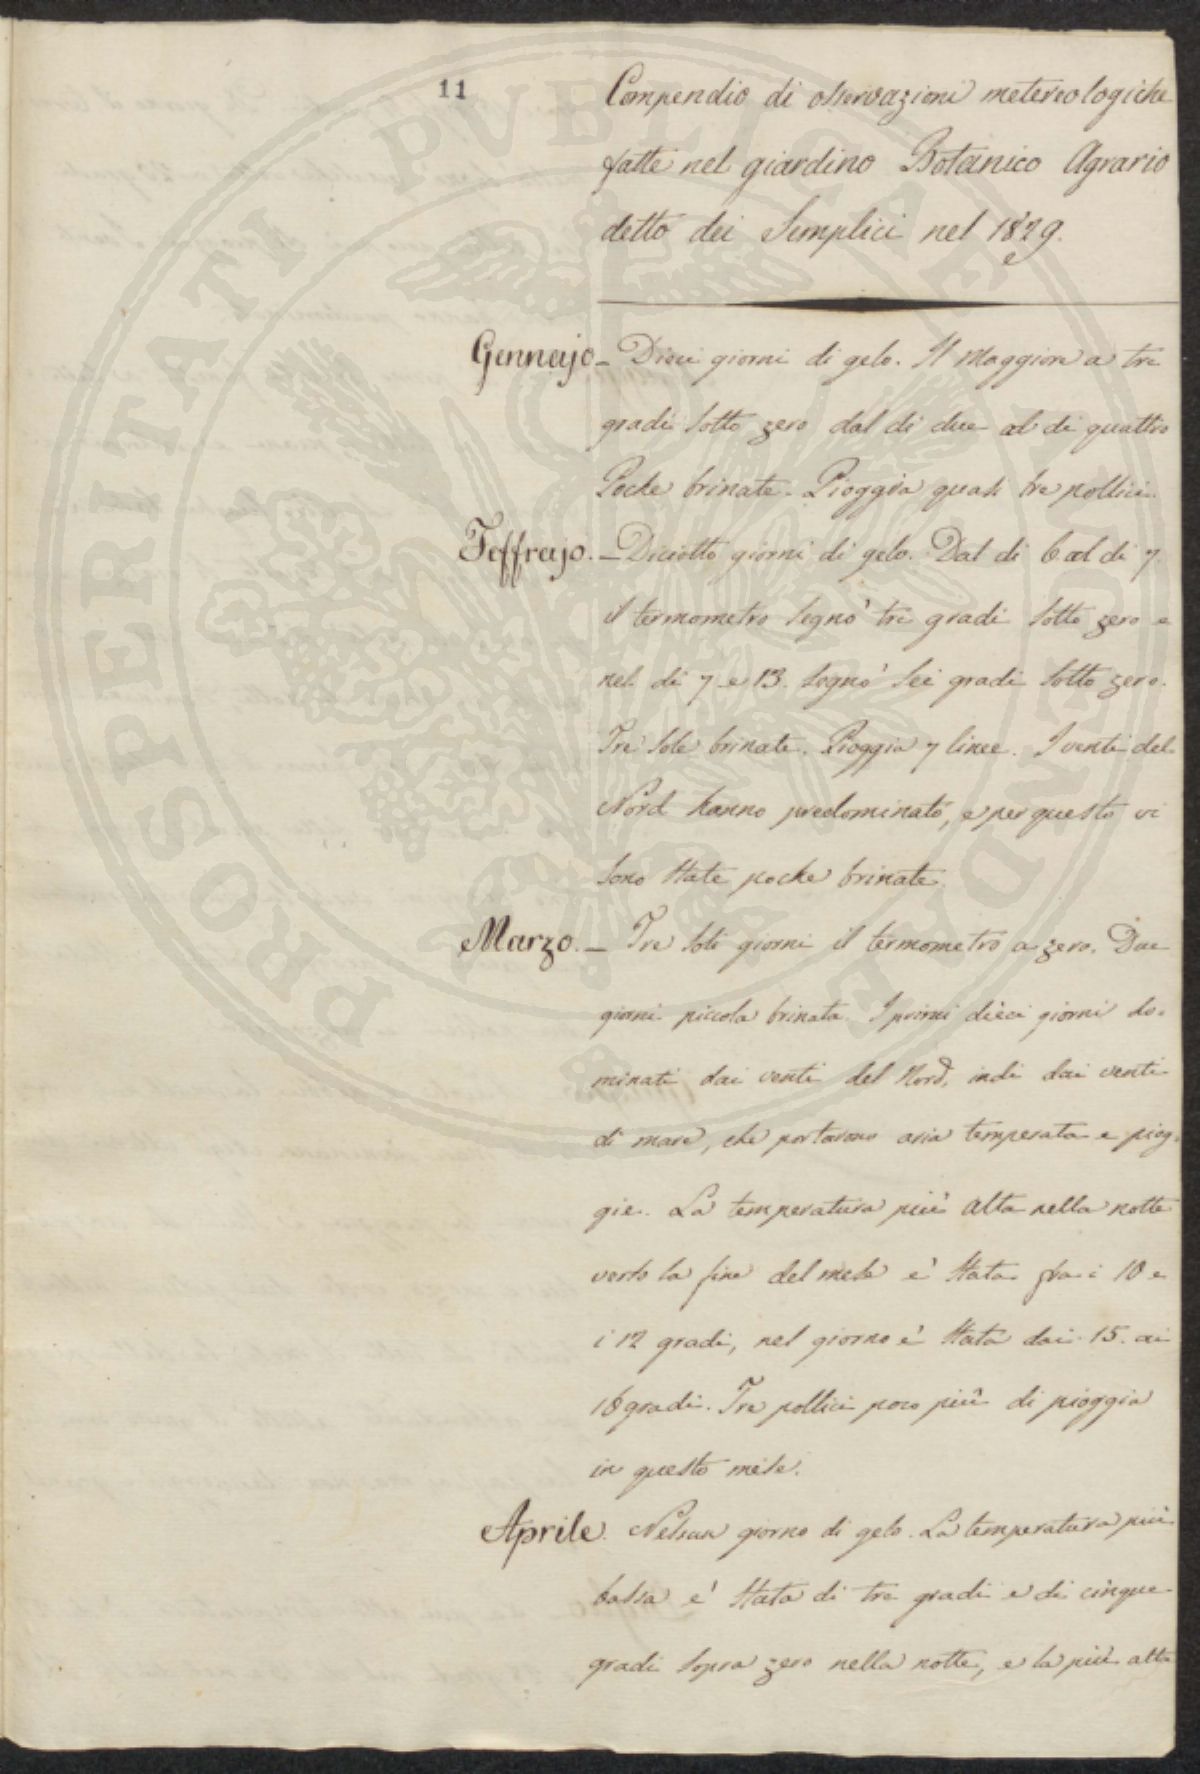 11
Compendio di osservazioni metereologiche
fatte nel giardino Botanico Agrario
detto dei Semplici nel 1829.
Gennajo – Dieci giorni di gelo. Il Maggiore a tre
gradi sotto zero dal di due al di quattro
Poche brinate. Pioggia quasi tre pollici.
Feffrajo. – Diciotto giorni di gelo. Dal di 6. al di 7.
il termometro segnò tre gradi sotto zero e
nel di 7 e 13. segnò sei gradi sotto zero.
Tre sole brinate. Pioggia 7 linee. I venti del
Nord hanno predominato, e per questo vi
sono state poche brinate.
Marzo. – Tre soli giorni il termometro a zero. Due
giorni piccola brinata. I primi dieci giorni do=
minati dai venti del Nord, indi dai venti
di mare, che portarono aria temperata e piog=
gie. La temperatura più alta nella notte
verso la fine del mese è stata fra i 10 e
i 12 gradi, nel giorno è stata dai 15. ai
18 gradi. Tre pollici poco più di pioggia
in questo mese.
Aprile. Nessun giorno di gelo. La temperatura più
bassa è stata di tre gradi e di cinque
gradi sopra zero nella notte, e la più alta
PROSPERITATI PVBLICAE AVGENDAE